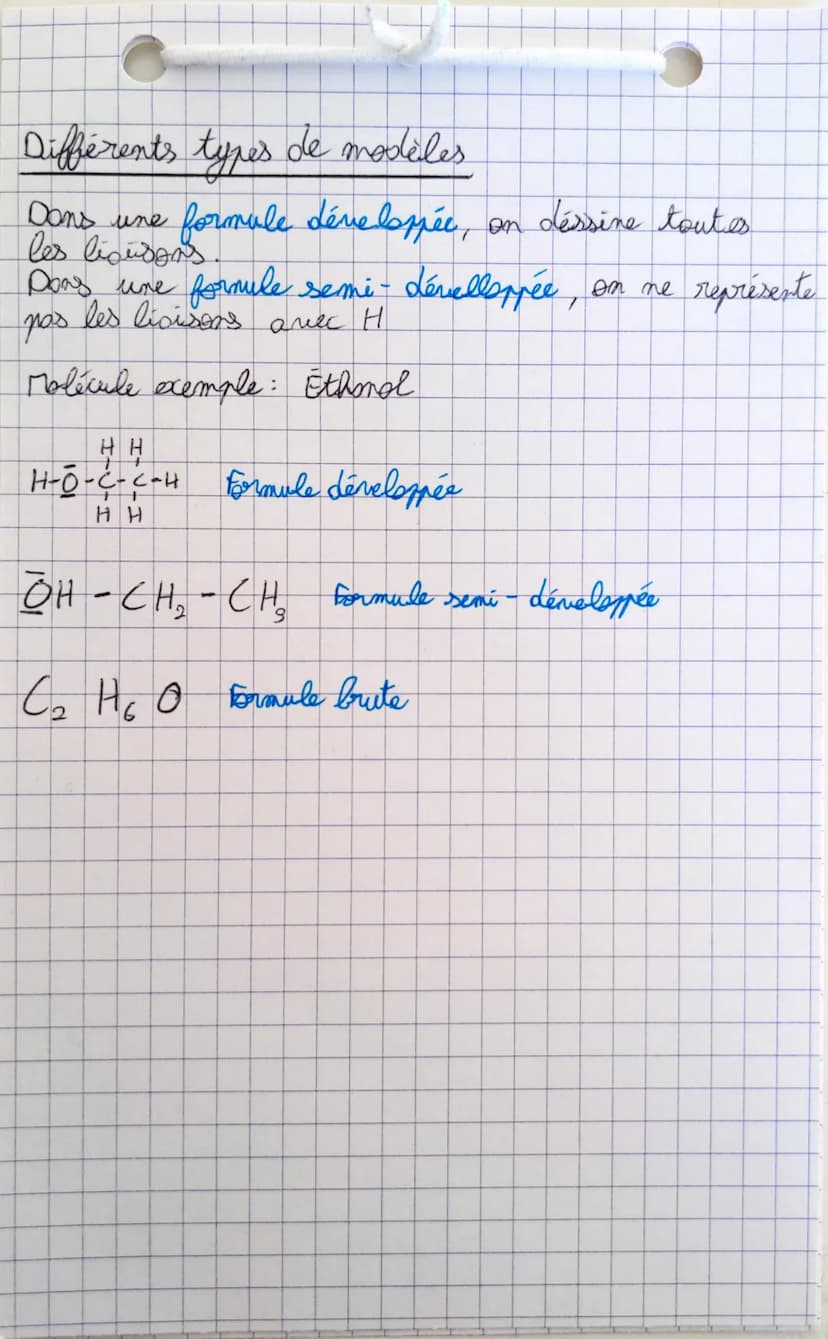 Différents types de modèles
Dans une formule développée, on déssine toutes
les liaisons.
Dans une formule semi-dévelloppée, on ne représente
pas les liaisons avec H
Molécule exemple : Éthanol
H H
H-O̲̅-C-C-H Formule développée
H H
O̲̅H - CH₂ - CH₃ Formule semi-développée
C₂ H₆ O Formule brute